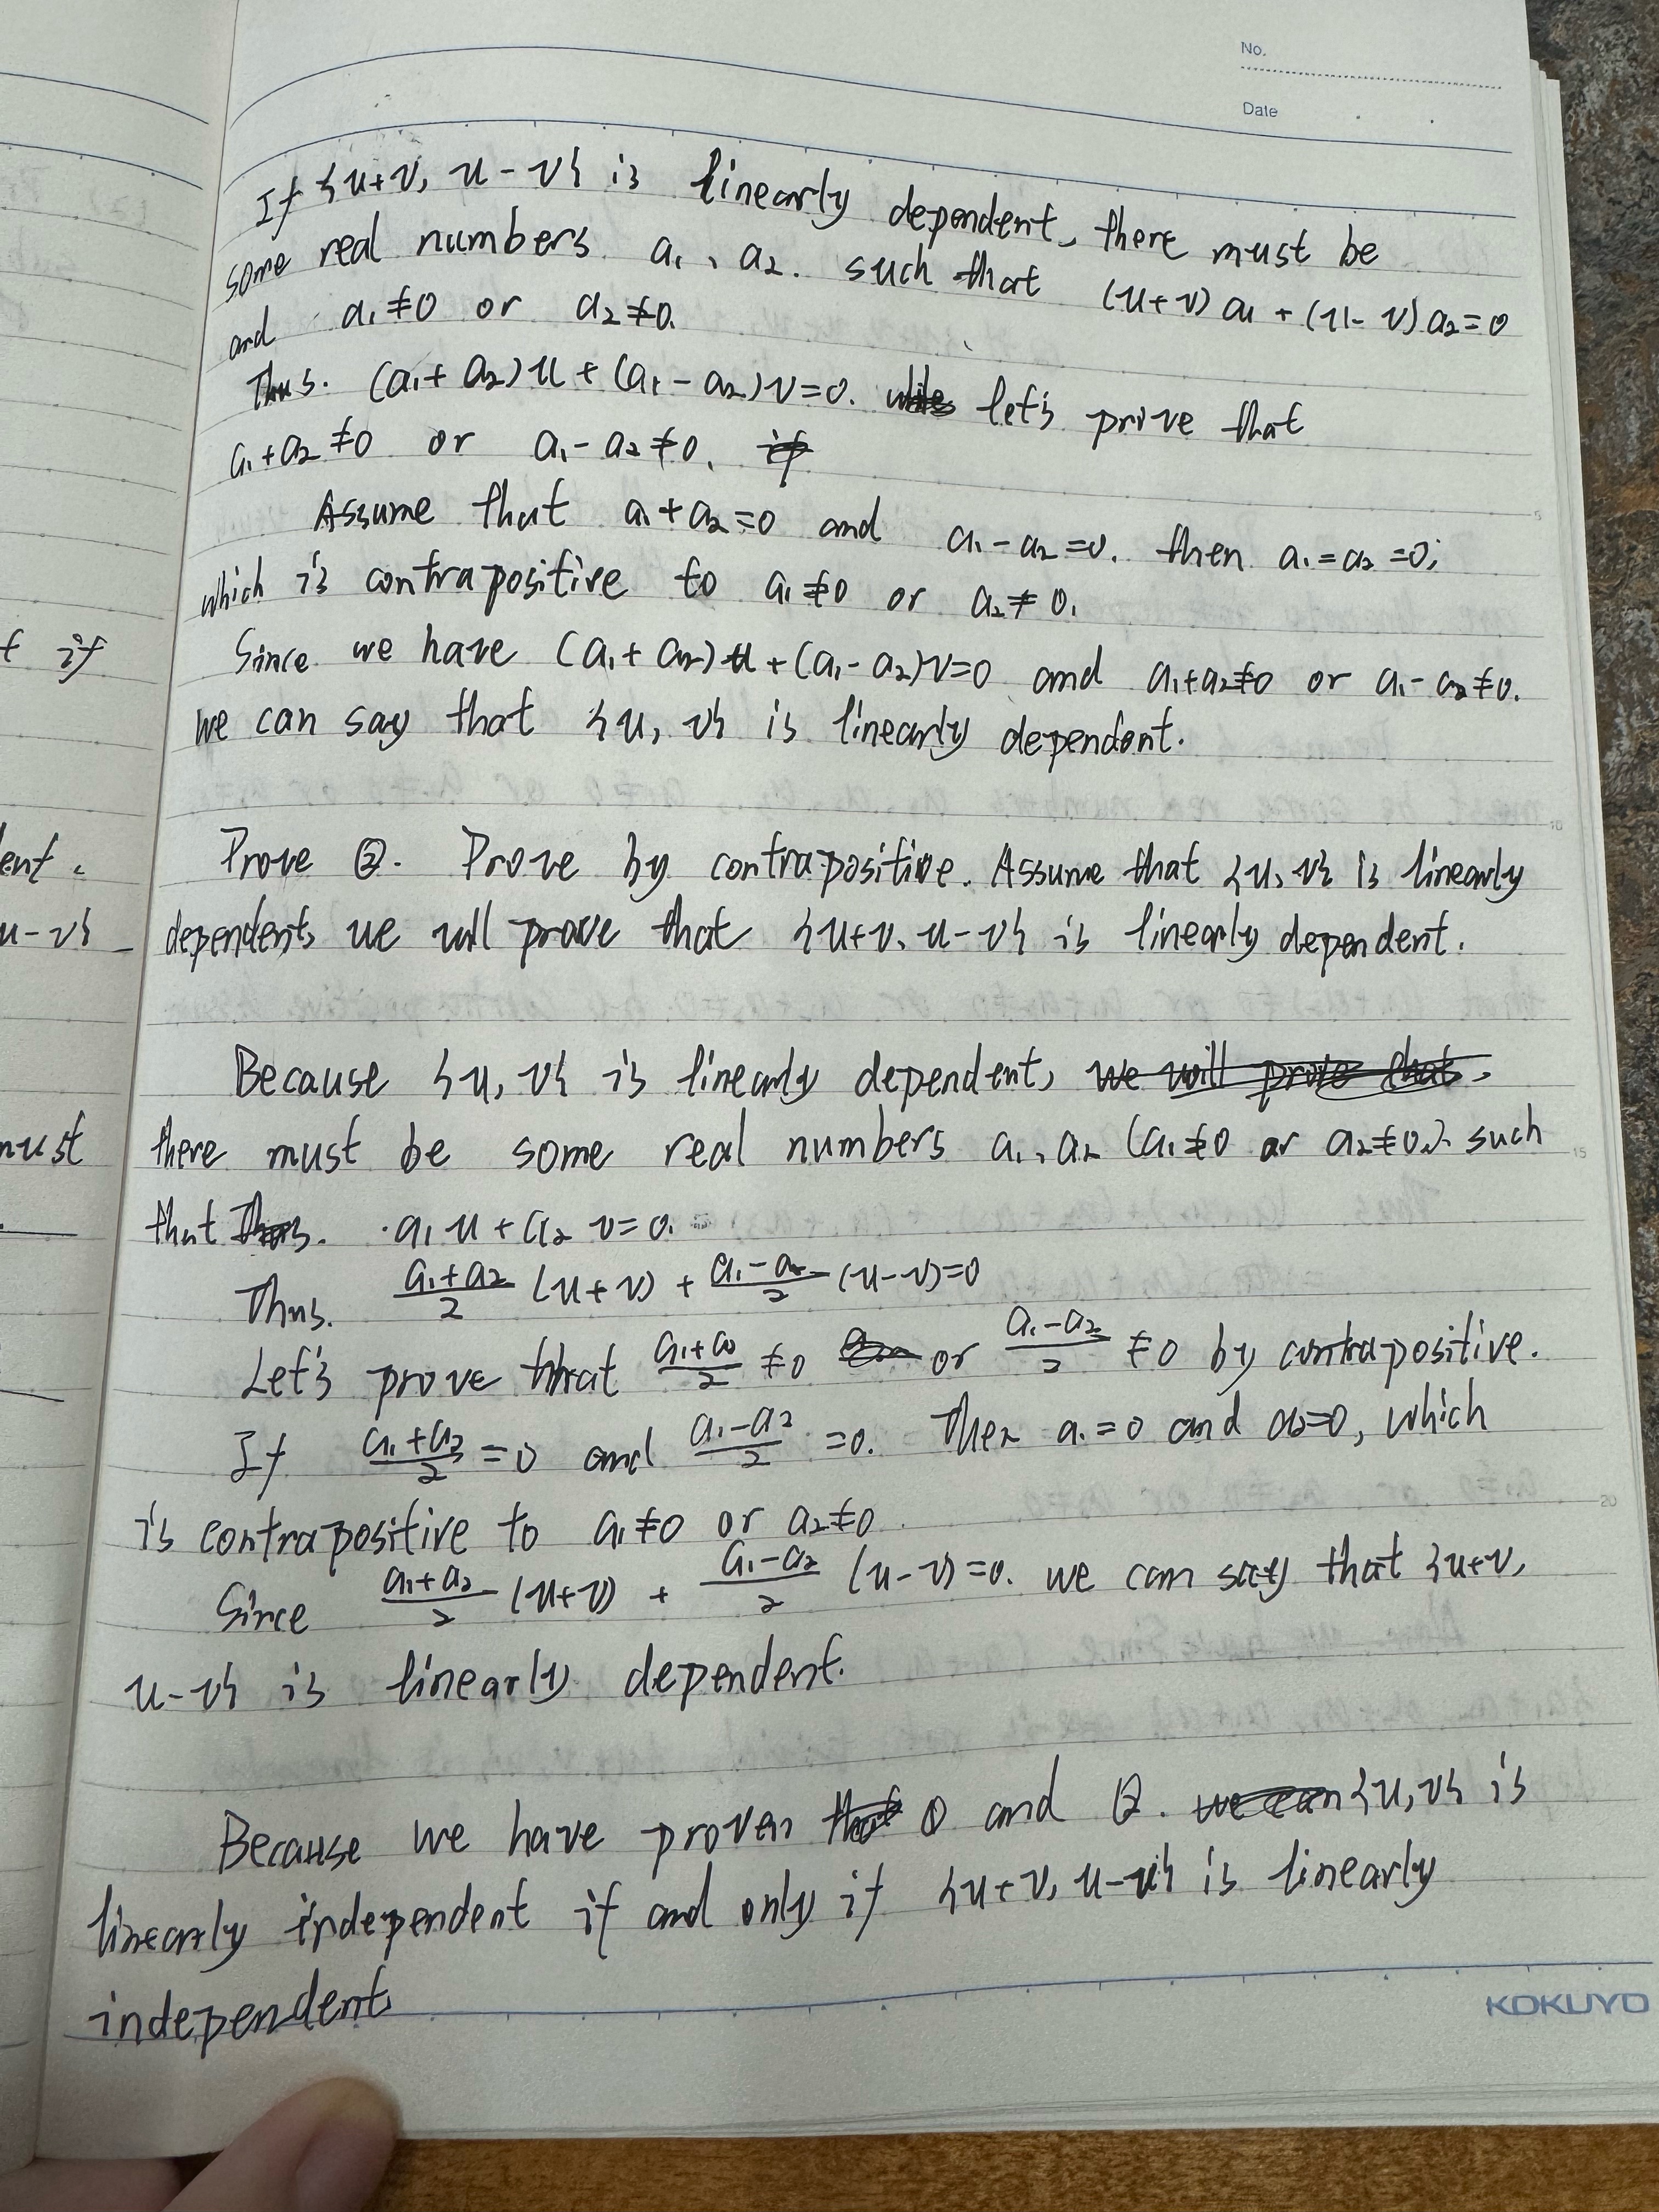 No.
Date
If {u+v, u-v} is linearly dependent, there must be
some real numbers a₁, a₂. such that (u+v)a₁ + (u-v)a₂=0
and a₁≠0 or a₂≠0.
Thus. (a₁+a₂)u+(a₁-a₂)v=0. let's prove that
a₁+a₂≠0 or a₁-a₂≠0.
Assume that a₁+a₂=0 and a₁-a₂=0. then a₁=a₂=0;
which is contrapositive to a₁≠0 or a₂≠0.
Since we have (a₁+a₂)u+(a₁-a₂)v=0 and a₁+a₂≠0 or a₁-a₂≠0.
we can say that {u, v} is linearly dependent.
Prove ②. Prove by contrapositive. Assume that {u, v} is linearly
dependent, we will prove that {u+v, u-v} is linearly dependent.
Because {u, v} is linearly dependent, we will prove that,
there must be some real numbers a₁, a₂ (a₁≠0 or a₂≠0.). such
that Thus. a₁u+a₂v=0.
Thus. (a₁+a₂)/2 (u+v) + (a₁-a₂)/2 (u-v)=0
Let's prove that (a₁+a₂)/2 ≠0 or (a₁-a₂)/2 ≠0 by contrapositive.
If (a₁+a₂)/2 =0 and (a₁-a₂)/2 =0. Then a₁=0 and a₂=0, which
is contrapositive to a₁≠0 or a₂≠0.
Since (a₁+a₂)/2 (u+v) + (a₁-a₂)/2 (u-v)=0. we can say that {u+v,
u-v} is linearly dependent.
Because we have proven that ① and ②. we can {u,v} is
linearly independent if and only if {u+v, u-v} is linearly
independent
KOKUYO
f if
ent.
u-v}
must
5
10
15
20